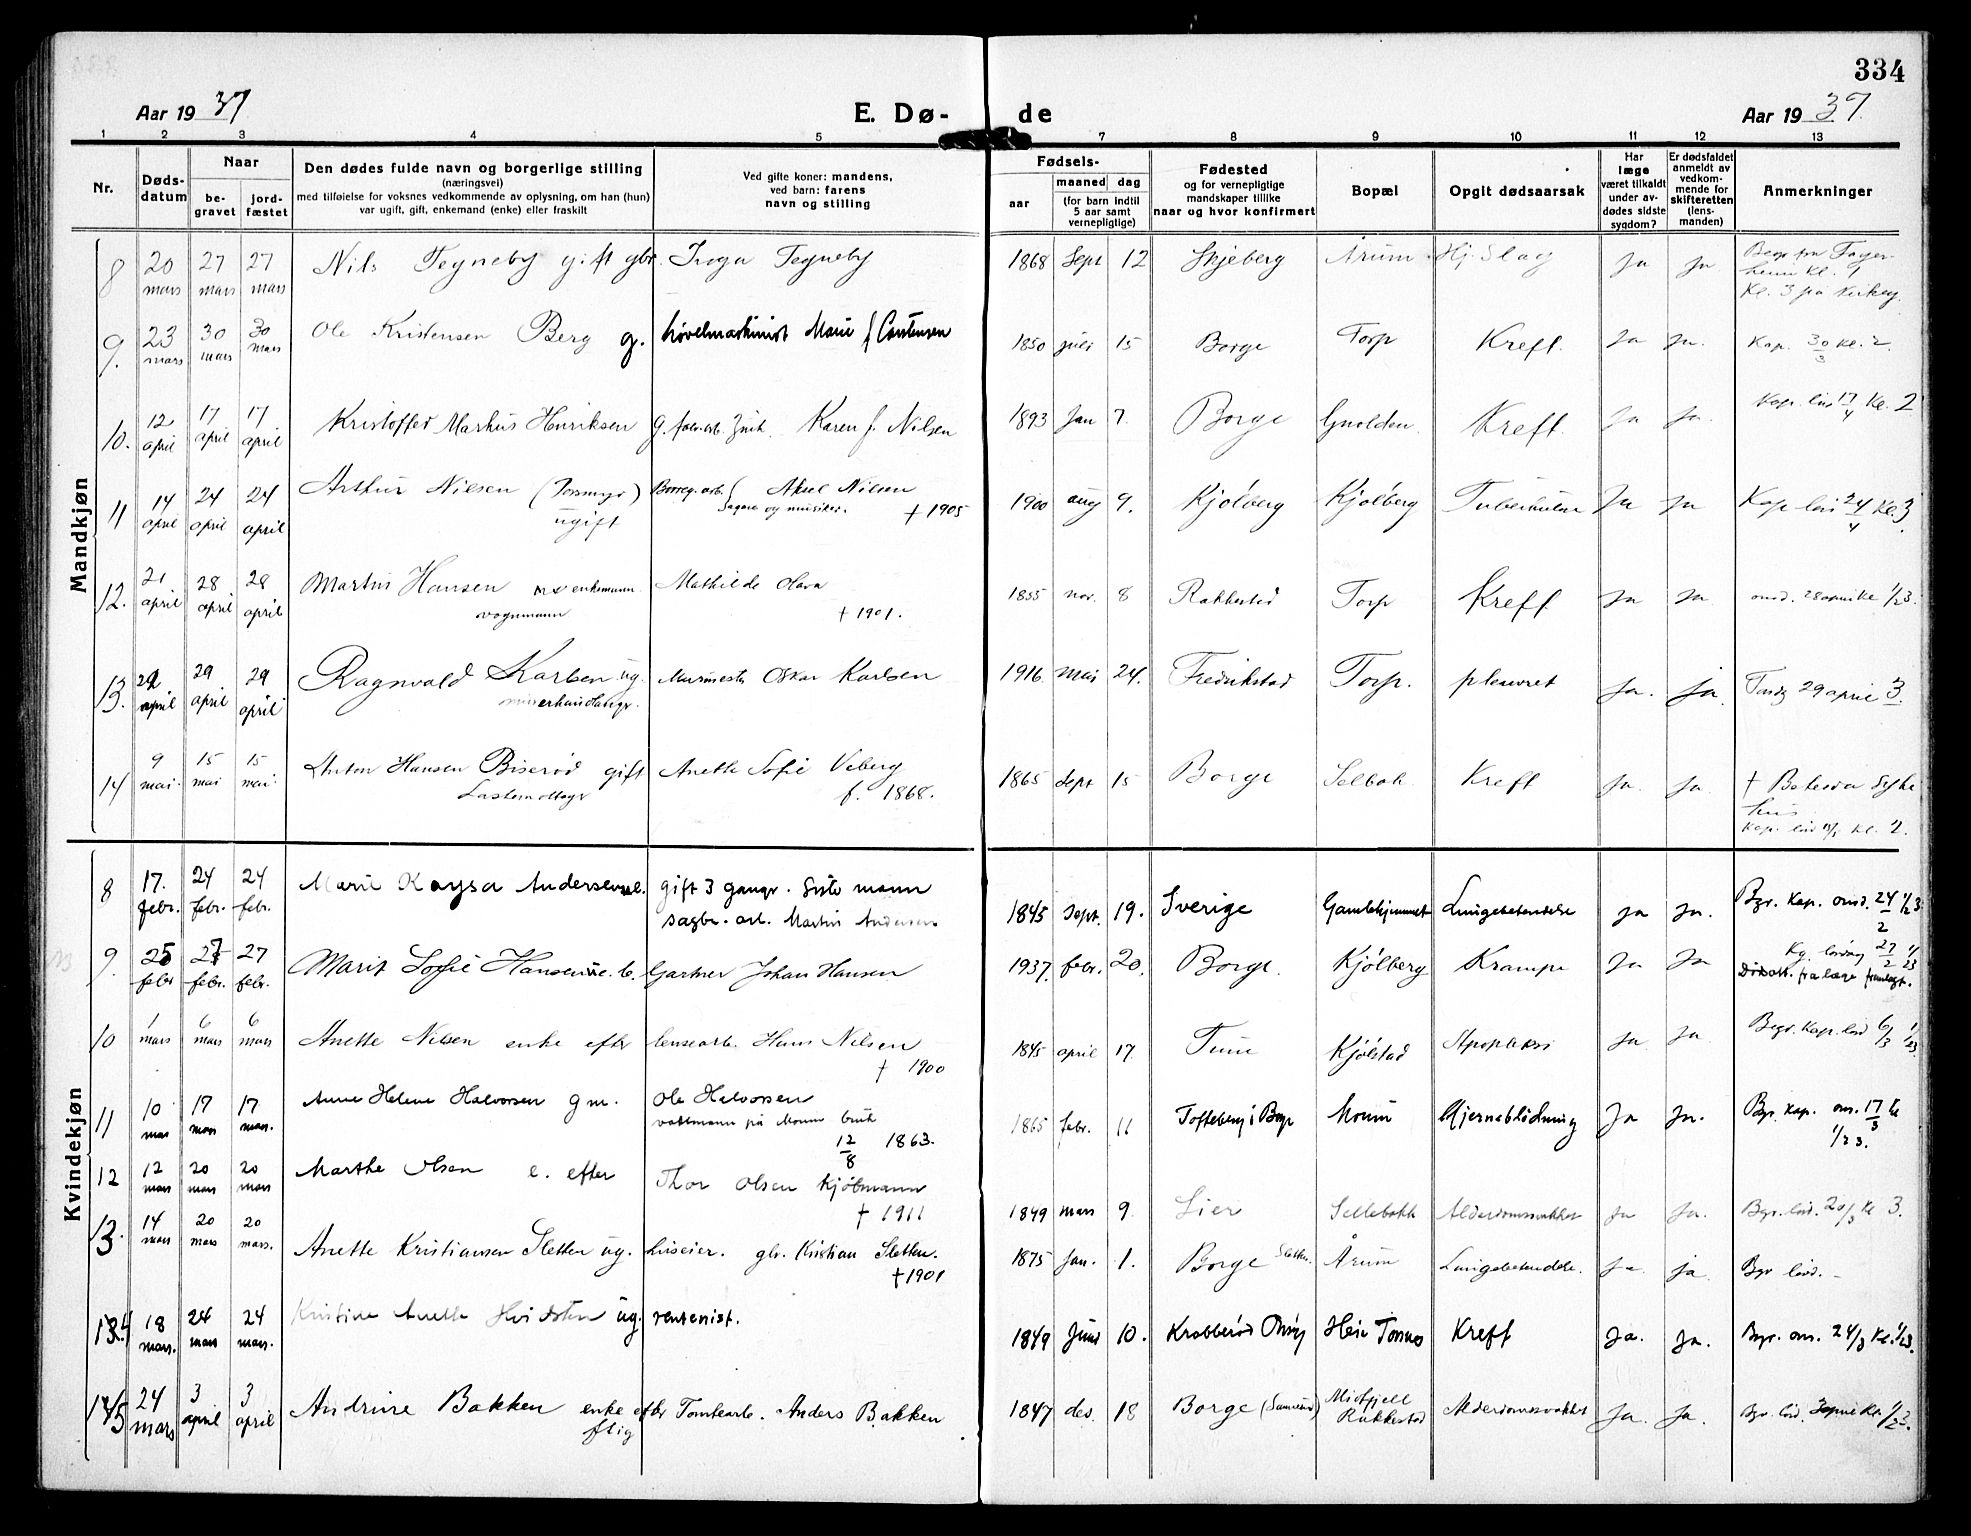 334
Aar 19 37 E. Dø- de Aar 19 37.
1 2 3 4 5 7 8 9 10 11 12 13
Nr. Døds-datum Naar be-gravet jord-fæstet Den dødes fulde navn og borgerlige stilling (næringsvei) med tilføielse for voksnes vedkommende av oplysning, om han (hun) var ugift, gift, enkemand (enke) eller fraskilt Ved gifte koner: mandens, ved barn: farens navn og stilling Fødsels- aar maaned dag (for barn indtil 5 aar samt vernepligtige) Fødested og for vernepligtige mandskaper tillike naar og hvor konfirmert Bopæl Opgit dødsaarsak Har læge været tilkaldt under av-dødes sidste sygdom? Er dødsfaldet anmeldt av vedkom-mende for skifteretten (lens-manden) Anmerkninger
Mandkjøn
8 20 mars 27 mars 27 mars Nils Tegneby gift gbr. Tegneby 1868 Sept 12 Skjeberg Årum Hj. Slag Ja Ja
Kl. 3 på
9. 23 mars 30 mars 30 mars Ole Kristensen Berg g. høvelmaskinist Marie f. 1850 juli 15 Borge Torp Kreft. Ja Ja. Kap. 30/3 Kl. 2.
10. 12 april 17 april 17 april Kristoffer Markus Henriksen g. Karen f. Nilsen 1893 Jan 7. Borge Kreft. Ja Ja. Kap. 17/4 Kl. 2
11 14 april 24 april 24 april Arthur Nilsen ugift Borreg. arb. Aksel Nilsen
Sagarb. og musiker. † 1905 1900 aug 9. Kjølberg Kjølberg Ja Ja Kap 24/4 Kl. 3
12. 21 april 28 april 28 april Martin Hansen enkemann Mathilde Olava 1855 nov. 8 Rakkestad Torp Kreft Ja Ja
vognmann † 1901.
13. 22 april 29 april 29 april Ragnvald Karlsen ug. Murmester Oskar Karlsen 1916 mai 24. Fredrikstad Torp. pleuret Ja. Ja. 29 april 3.
14 9 mai. 15 mai 15 mai. Anton Hansen Biserød gift Anette Sofie Viberg 1865 Sept 15 Borge Selbak Kreft Ja. Ja. † Betesda Syke
f. 1868. hus
Kvindekjøn
8 17. febr. 24 febr. 24 febr. Marie Kaysa Andersen gift 3 ganger. Siste mann
sagbr. arb. Martin Andersen 1845 sept. 19. Sverige Gamlehjemmet Lungebetendelse Ja Ja. Bgr. Kap. onsd. 24/2 1/2 3
9. 25 febr 27 febr. 27 febr. Marit Sofie Hansen Gartner Johan Hansen 1937. febr. 20. Borge. Kjølberg Krampe Ja Ja Kg. lördag 27/2 1/2 3
Dödsatt. fra læge fremlagt.
10 1 mars 6 mars 6 mars Anette Nilsen enke efter lensearb. Hans Nilsen 1845 april 17. Tune Kjølstad Apopleksi Ja. Ja. Begr. Kap. lörd 6/3 1/2 3.
† 1900
11 10 mars 17 mars 17 mars. Anne Helene Halvorsen gm. Ole Halvorsen 1865 febr. 11 Tofteberg i Borge Moum Hjerneblödning Ja Ja. Bgr. Kap. ons. 17/3 kl
vaktmann på Moum bruk 1/2 3.
12/8 1863.
12 12 mars 20 mars 20 mars Marthe Olsen e. efter Thor Olsen Kjøbmann 1849 mars 9. Lier Sellebakk Alderdomssvakhet Ja Ja. Bgr. lörd. 20/3 Kl 3.
† 1911
13. 14 mars 20 mars 20 mars. Anette Kristiansen Sletten ug. huseier. gbr. Kristian Sletten. 1875 Jan. 1. Borge Sletten. Årum Lungebetendelse. Ja. ja Bgr lörd. -
† 1901
14 18 mars. 24 mars 24 mars. Kristine Anette Hvidsten ug. rentenist. 1849 Juni 10. Krabberød Kreft Ja. Ja. Bgr. ons. 24/3 Kl. 1/2 3.
15 24 mars 3 april 3 april Andrine Bakken enke efter Tomtearb. Anders Bakken 1847 des. 18 Borge Rakkestad Alderdomssvakhet Ja. Ja. Bgr. lörd. 3 april Kl. 1/2 3.